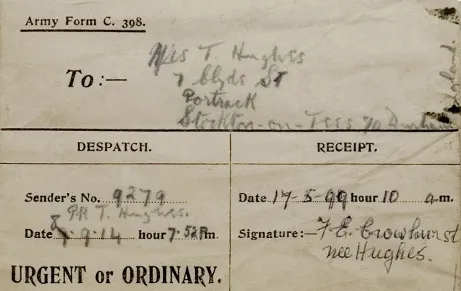 Army Form C. 398.
To:—
Mis T. Hughes
7 Clyde St
Portrack
Stockton-on-Tees Durham
England.
DESPATCH.
Sender's No. 9279
T. Hughes.
Date 8.9.14 hour 7.52 Pm.
URGENT or ORDINARY.
RECEIPT.
Date 17-5-99 hour 10 a.m.
Signature:— F. E. Crowhurst
nee Hughes.